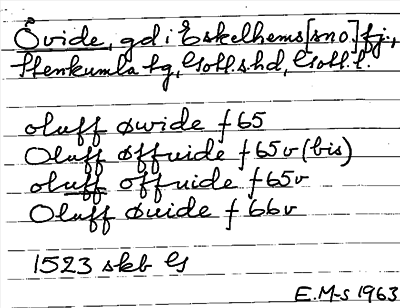 Övide, gd i Eskelhems [sno.] tj.,
Stenkumla tg, Gotl.s hd, Gotl. l.
oluff øwide f 65
Oluff øffuide f 65v (bis)
oluff offuide f 65v
Oluff øuide f 66v
1523 skb G
E.M-s 1963